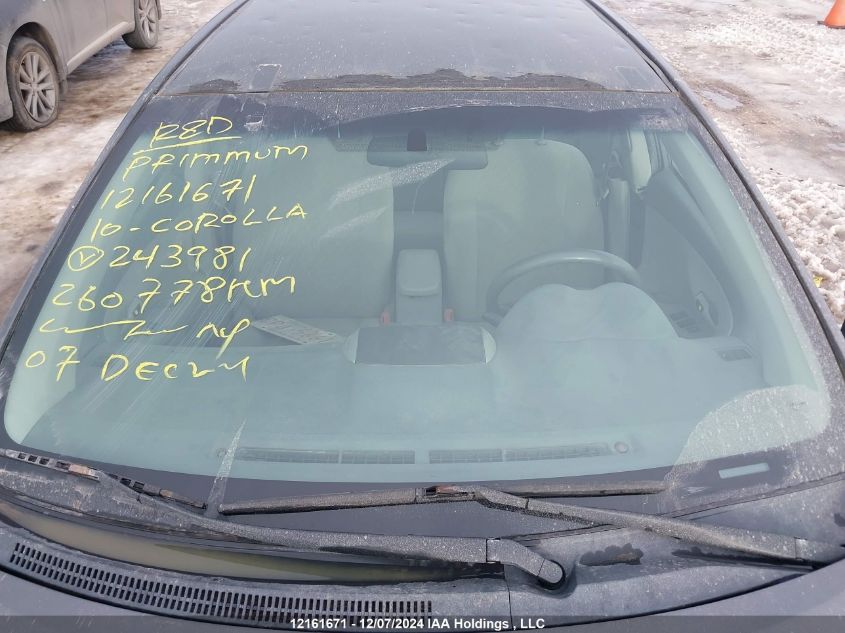 R&D
PRIMMUM
12161671
10-COROLLA
Ⓥ243981
260778KM
07 DEC24
12161671 - 12/07/2024 IAA Holdings , LLC